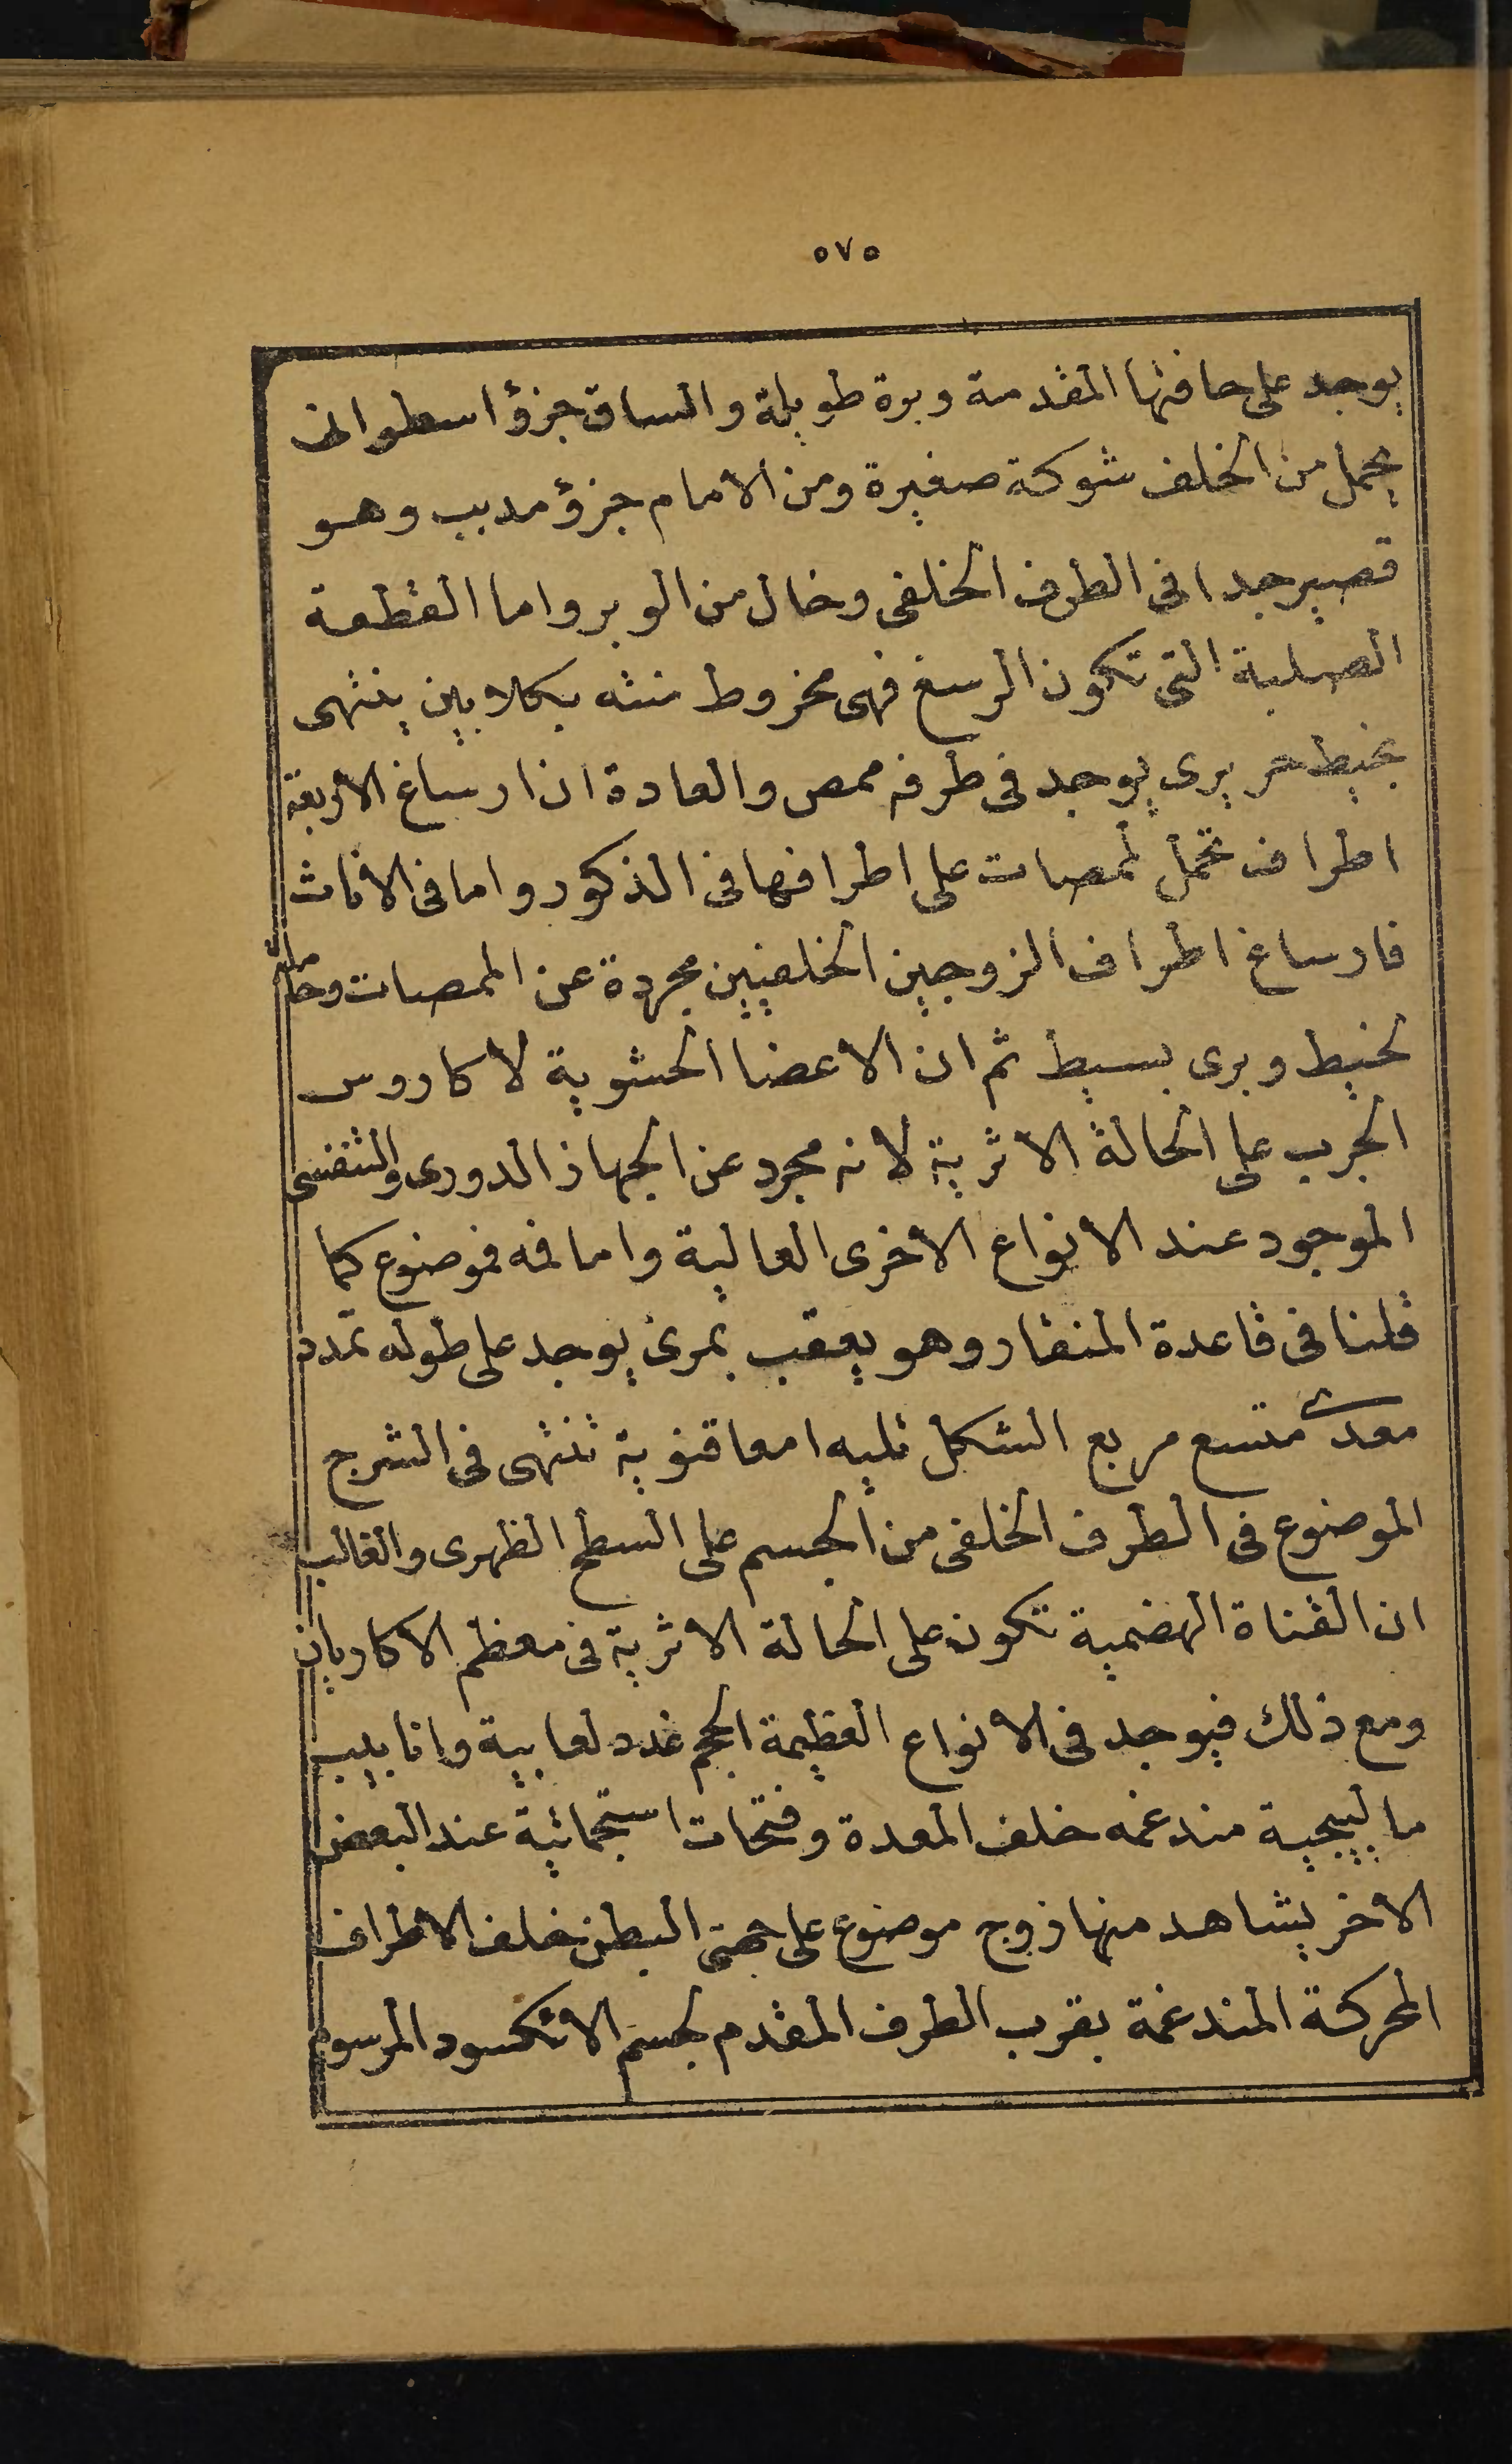 ٥٧٥
يوجد على حافتها المقدمة وبرة طويلة والساق جزؤ اسطوانى
يحمل من الخلف شوكة صغيرة ومن الامام جزؤ مدبب وهو
قصير جدا فى الطرف الخلفى وخال من الوبر واما القطعة
الصلبة التى تكون الرسغ فهى مخروط منته بكلابين ينتهى
بخيط حريرى يوجد فى طرفه ممص والعادة ان ارساغ الاربعة
اطراف تحمل لممصات على اطرافها فى الذكور واما فى الاناث
فارساغ اطراف الزوجين الخلفيين مجردة عن الممصات وحاملة
لخيط وبرى بسيط ثم ان الاعضا الحشوية لاكاروس
الجرب على الحالة الاثرية لانه مجرد عن الجهاز الدورى والتنفسى
الموجود عند الانواع الاخرى العالية واما فمه فموضوع كما
قلنا فى قاعدة المنقار وهو يعقب بمرئ يوجد على طوله تمدد
معدى متسع مربع الشكل تليه امعا قنوية تنتهى فى الشرج
الموضوع فى الطرف الخلفى من الجسم على السطح الظهرى والغالب
ان القناة الهضمية تكون على الحالة الاثرية فى معظم الاكاريان
ومع ذلك فيوجد فى الانواع العظيمة الحجم غدد لعابية وانابيب
مالبيجية مندغمه خلف المعدة وفتحات استجمائية عند البعض
الاخر يشاهد منها زوج موضوع على جهتى البطن خلف الاطراف
المحركة المندغمة بقرب الطرف المقدم لجسم الاتكسود المرسوم